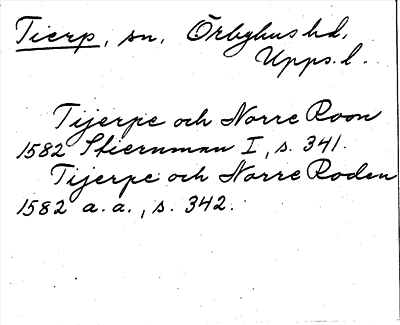 Tierp, sn. Örbyhus hd,
Upps. l.
Tijerpe och Norre Roon
1582 Stiernman I, s. 341.
Tijerpe och Norre Roden
1582 a. a., s. 342.